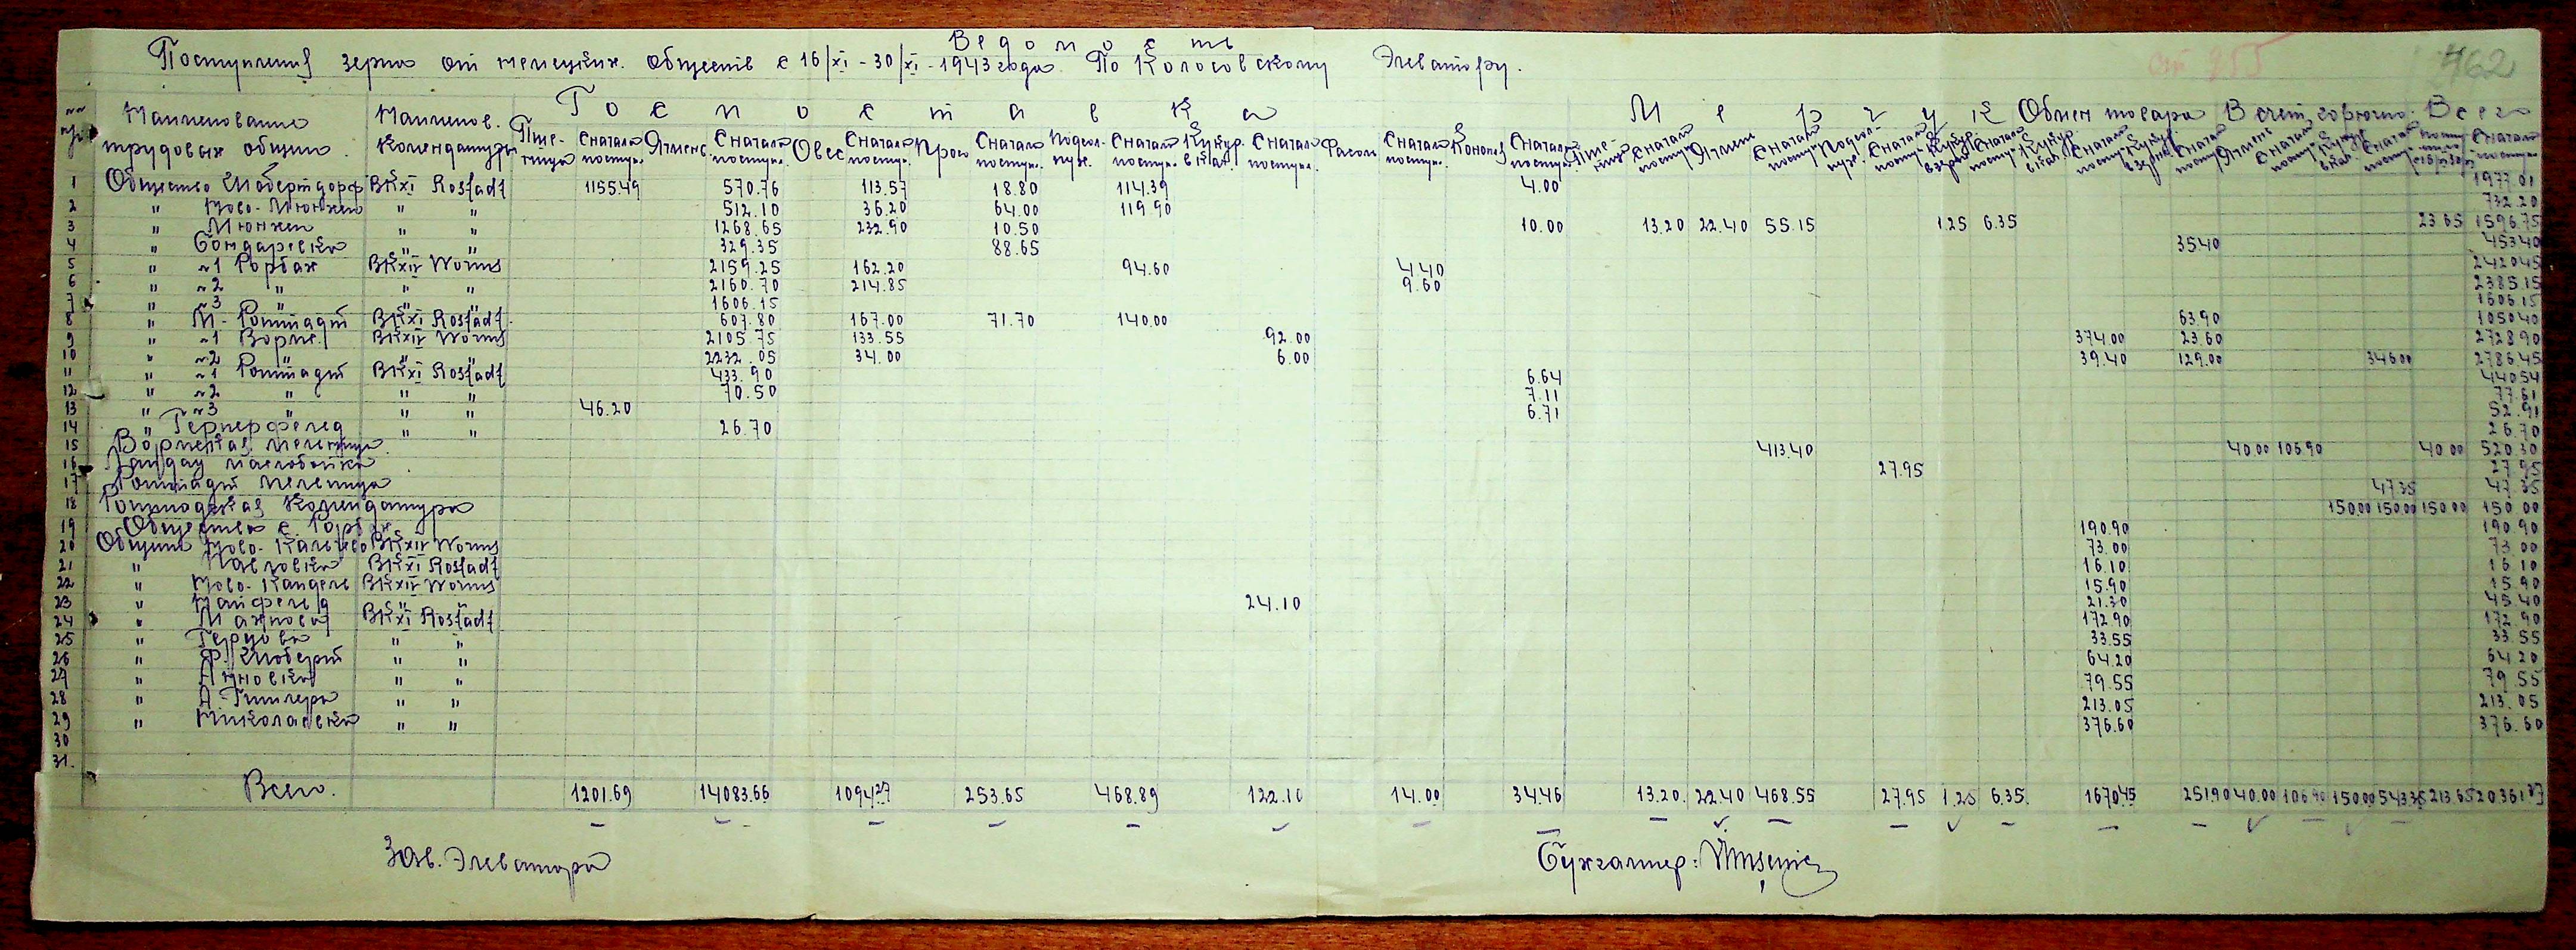 Ведомость
Поступления зерна от немецких обществ с 16/XI - 30/XI - 1943 года По Колосовскому Элеватору.
462
Госпоставка Мерчук Обмен товара В счет горючего Всего
Наименование трудовых общин Наименов. Комендатуры Пшеница С начала поступ. Ячмень С начала поступ. Овес С начала поступ. Просо С начала поступ. Подсолнух. С начала поступ. Кукур. в кач. С начала поступ. Фасоль С начала поступ. Конопля С начала поступ.
1 Общество Шобертдорф BKXI Rostadt 1155.49 570.76 113.57 18.80 114.39 4.00 1977.01
2 " Ново-Мюнхен " " 512.10 36.20 64.00 119.90 732.20
3 " Мюнхен " " 1268.65 232.90 10.50 10.00 13.20 22.40 55.15 1.25 6.35 23 65 1596.75
4 " Бондаревка " " 329.35 88.65 35.40 453.40
5 " №1 Рорбах BKXIV Worms 2159.25 162.20 94.60 4.40 2420.45
6 " №2 " " " 2160.70 214.85 9.60 2385.15
7 " №3 " " " 1606.15 1606.15
8 " М-Роштадт BKXI Rostadt 607.80 167.00 71.70 140.00 63.90 1050.40
9 " №1 Вормс BKXIV Worms 2105.75 133.55 92.00 374.00 23.60 2728.90
10 " №2 " " " 2232.05 34.00 6.00 39.40 129.00 346.00 2786.45
11 " №1 Роштадт BKXI Rostadt 433.90 6.64 440.54
12 " №2 " " " 70.50 7.11 77.61
13 " №3 " " " 46.20 6.71 52.91
14 " Гернерфельд " " 26.70 26.70
15 Вормская мельница 413.40 40.00 106.90 40 00 520.30
16 Ландау маслобойка 27.95 27.95
17 Роштадт мельница 47.35 47.35
18 Роштадская Комендатура 150.00 150.00 150 00 150 00
19 Общество с. Рорбах 190.90 190 90
20 Община Ново-Кальчево BKXIV Worms 73.00 73 00
21 " Павловка BKXI Rostadt 16.10 16 10
22 " Ново-Кандель BKXIV Worms 15.90 15.90
23 " Найфельд " " 24.10 21.30 45.40
24 " Махново BKXI Rostadt 172.90 172.90
25 " " " 33.55 33.55
26 " Ф. Шоберт " " 64.20 64 20
27 " Анновка " " 79.55 79 55
28 " А. Гитлера " " 213.05 213.05
29 " Николаевка " " 376.60 376.60
30
31.
Всего. 1201.69 14083.66 1094.27 253.65 468.89 122.10 14.00 34.46 13.20. 22.40 468.55 27.95 1.25 6.35. 1670.45 251.90 40.00 106.90 150.00 543.35 213.65 20361.27
Зав. Элеватора Бухгалтер: